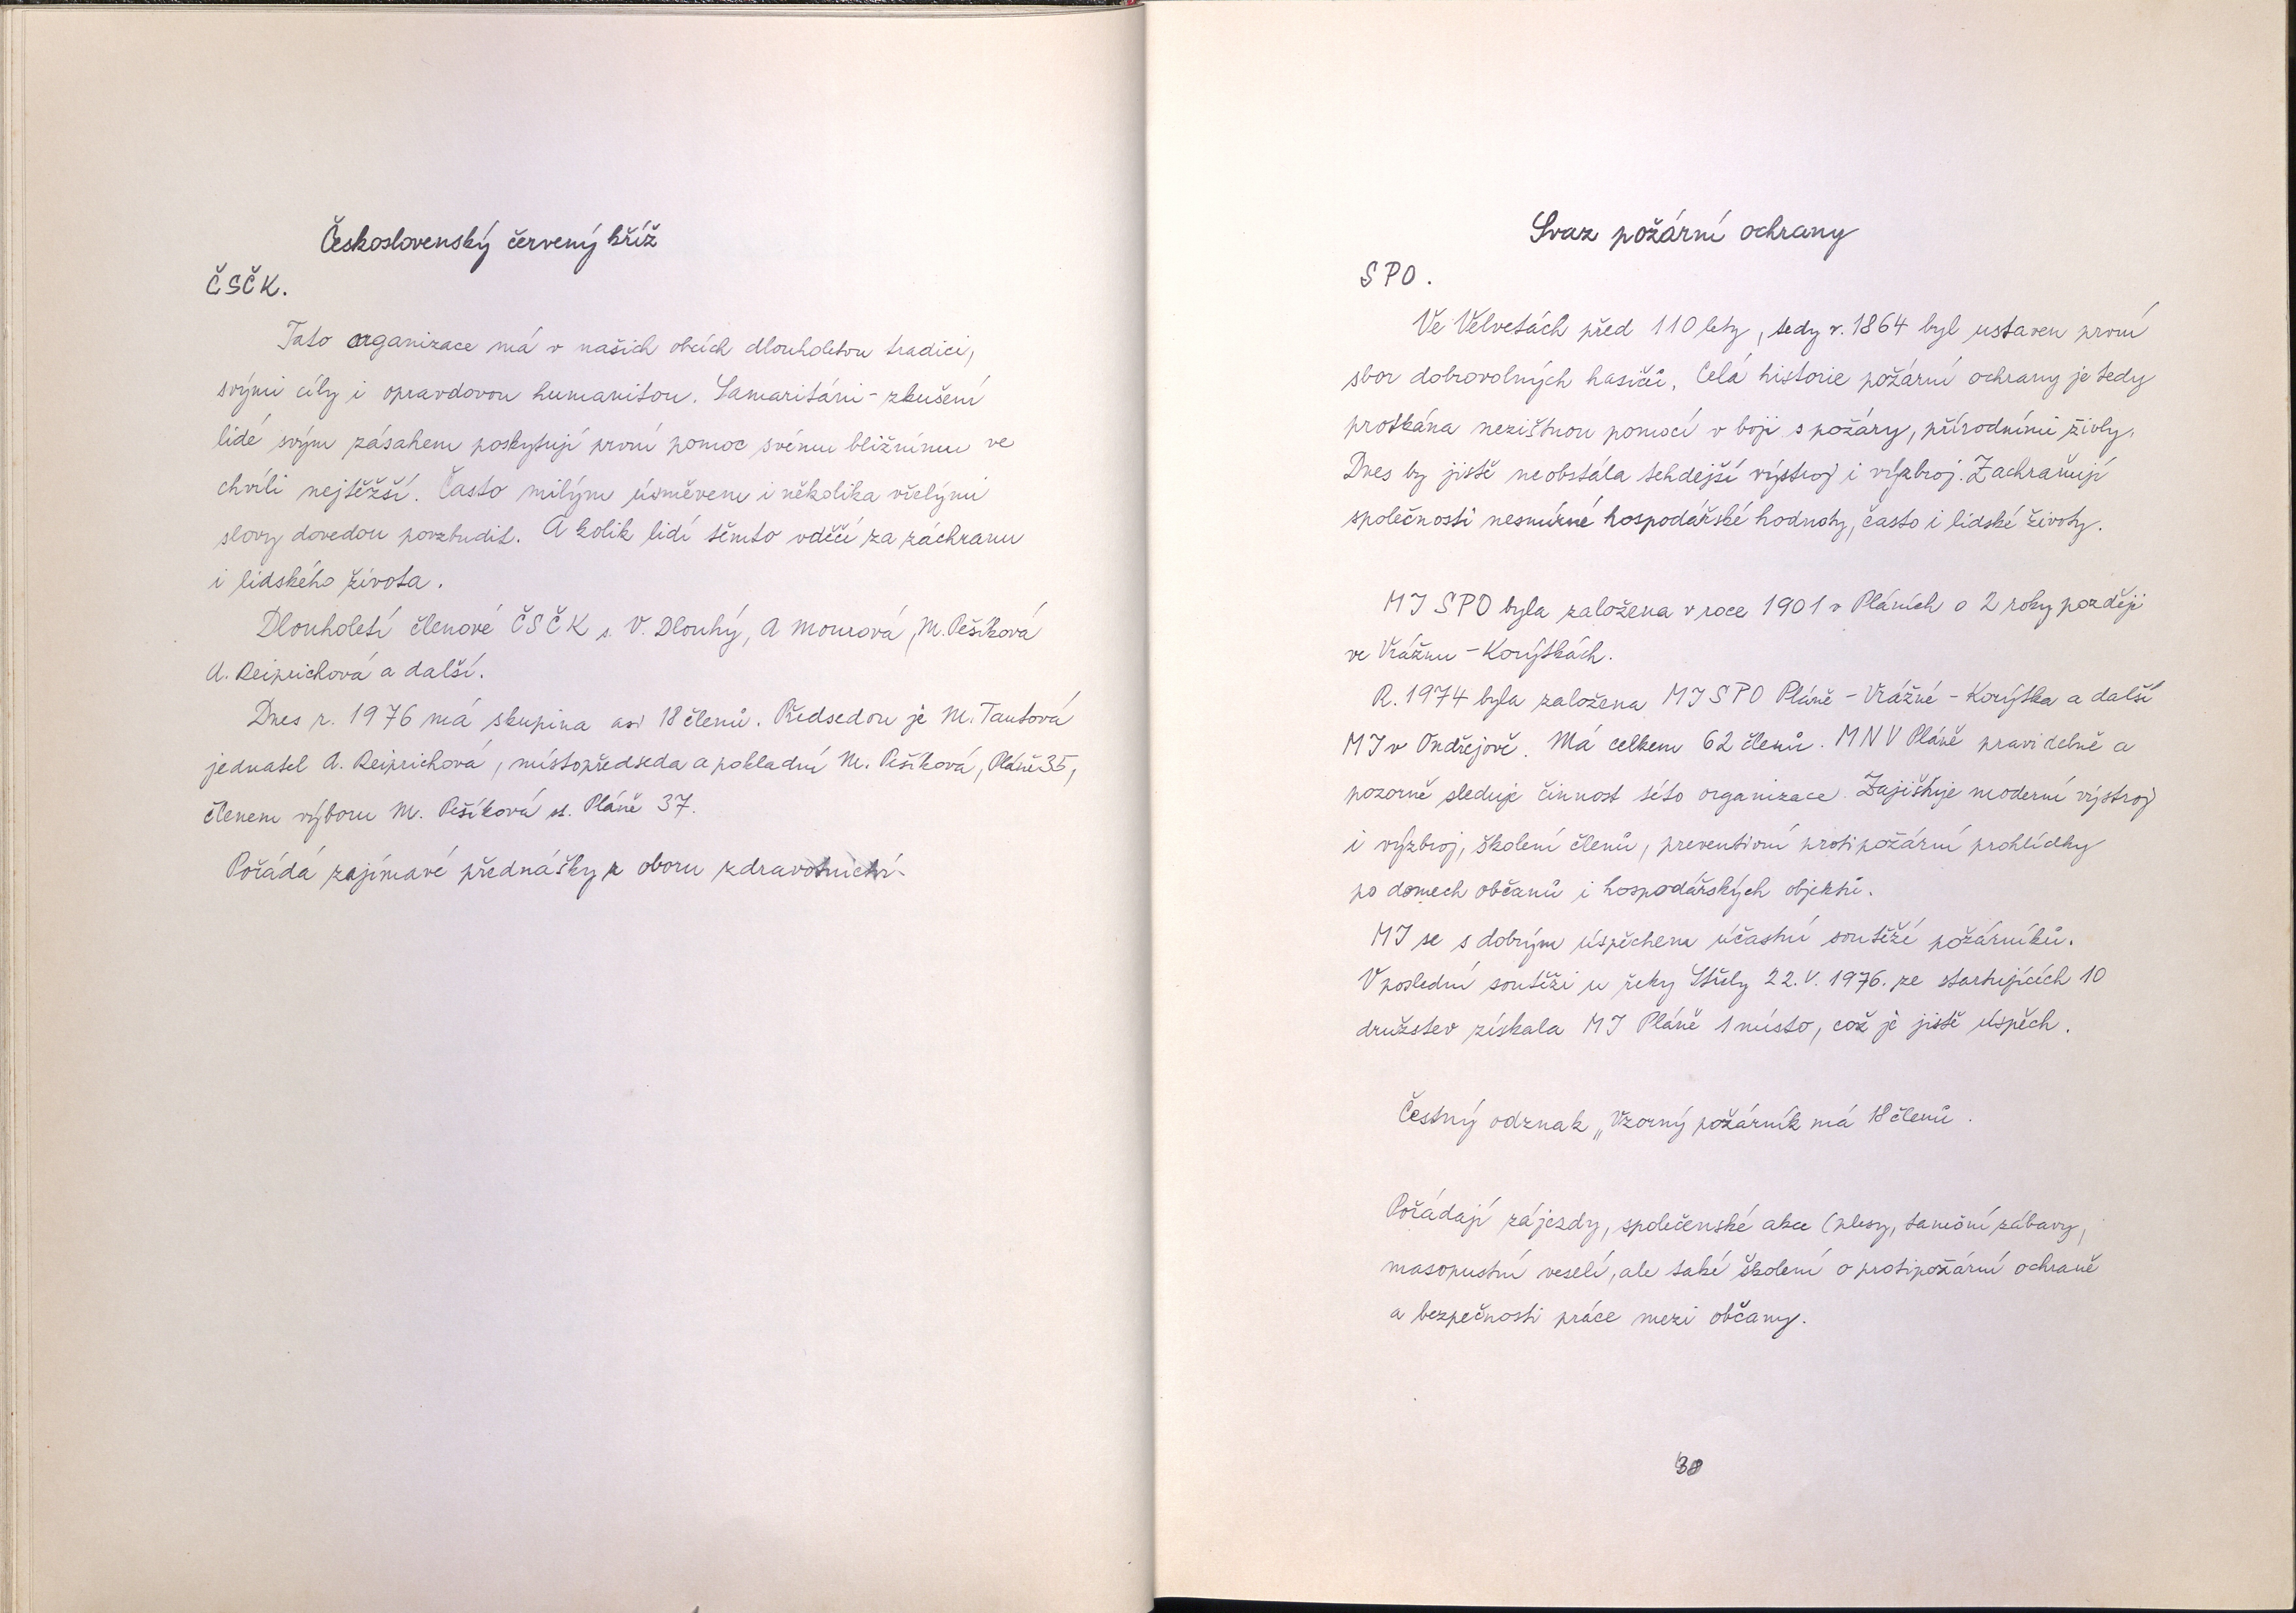 Československý červený kříž
ČSČK.
Tato organizace má v našich obcích dlouholetou tradici,
svými cíly i opravdovou humanitou. Samaritáni - zkušení
lidé svým zásahem poskytují první pomoc svému bližnímu ve
chvíli nejtěžší. Často milým úsměvem i několika vřelými
slovy dovedou povzbudit. A kolik lidí těmto vděčí za záchranu
i lidského života.
Dlouholetí členové ČSČK s. V. Dlouhý, A Mourová, M. Pešíková
A. Reiprichová a další.
Dnes r. 1976 má skupina asi 18 členů. Předsedou je M. Tautová
jednatel A. Reiprichová, místopředseda a pokladní M. Pešíková, Pláně 35,
členem výboru M. Pešíková st. Pláně 37.
Pořádá zajímavé přednášky z oboru zdravotnictví.
Svaz požární ochrany
SPO.
Ve Velvetách před 110 lety, tedy r. 1864 byl ustaven první
sbor dobrovolných hasičů. Celá historie požární ochrany je tedy
protkána nezištnou pomocí v boji s požáry, přírodními živly.
Dnes by jistě neobstála tehdejší výstroj i výzbroj. Zachraňují
společnosti nesmírné hospodářské hodnoty, často i lidské životy.
MJ SPO byla založena v roce 1901 v Pláních o 2 roky později
ve Vrážnu - Korýtkách.
R. 1974 byla založena MJ SPO Pláně - Vrážné - Korýtka a další
MJ v Ondřejově. Má celkem 62 členů. MNV Pláně pravidelně a
pozorně sleduje činnost této organizace. Zajišťuje moderní výstroj
i výzbroj, školení členů, preventivní protipožární prohlídky
po domech občanů i hospodářských objektů.
MJ se s dobrým úspěchem účastní soutěží požárníků.
V poslední soutěži u řeky Střely 22. V. 1976. ze startujících 10
družstev získala MJ Pláně 1 místo, což je jistě úspěch.
Čestný odznak „Vzorný požárník má 18 členů.
Pořádají zájezdy, společenské akce (plesy, taneční zábavy,
masopustní veselí, ale také školení o protipožární ochraně
a bezpečnosti práce mezi občany.
38